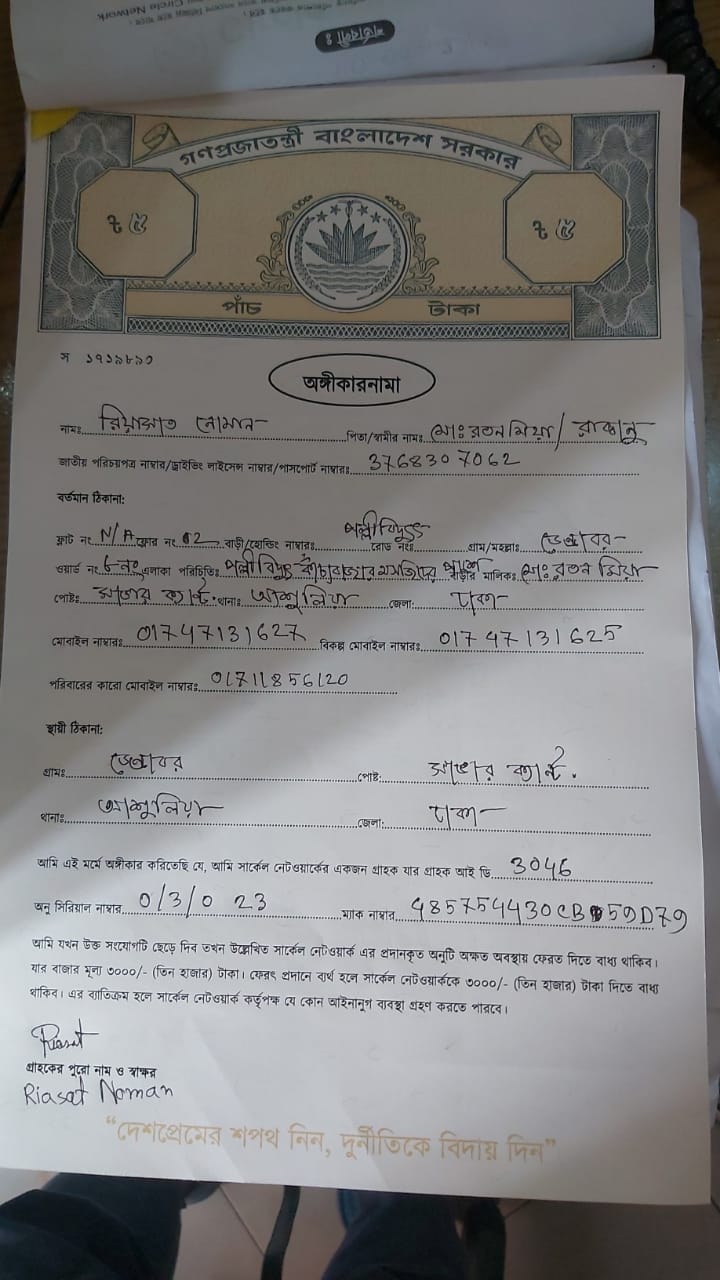 শর্তাবলী ঃ
গণপ্রজাতন্ত্রী বাংলাদেশ সরকার
৳ ৫
৳ ৫
পাঁচ টাকা
স ১৭১৯৮৯০
অঙ্গীকারনামা
নামঃ রিয়াসাত নোমান পিতা/স্বামীর নামঃ মোঃ রতন মিয়া/
জাতীয় পরিচয়পত্র নাম্বার/ড্রাইভিং লাইসেন্স নাম্বার/পাসপোর্ট নাম্বারঃ 3768307062
বর্তমান ঠিকানা:
ফ্লাট নং N/A ফ্লোর নং 02 বাড়ী/হোল্ডিং নাম্বারঃ পল্লীবিদ্যুৎ রোড নংঃ গ্রাম/মহল্লাঃ ডেন্ডাবর
ওয়ার্ড নং ৬নং এলাকা পরিচিতিঃ পল্লীবিদ্যুৎ কাঁচাবাজার মসজিদের পাশে বাড়ীর মালিকঃ মোঃ রতন মিয়া
পোষ্টঃ সাভার ক্যান্ট. থানাঃ আশুলিয়া জেলা: ঢাকা
মোবাইল নাম্বারঃ 01747131627 বিকল্প মোবাইল নাম্বারঃ 01747131625
পরিবারের কারো মোবাইল নাম্বারঃ 01711856120
স্থায়ী ঠিকানা:
গ্রামঃ ডেন্ডাবর পোষ্ট: সাভার ক্যান্ট.
থানাঃ আশুলিয়া জেলা: ঢাকা
আমি এই মর্মে অঙ্গীকার করিতেছি যে, আমি সার্কেল নেটওয়ার্কের একজন গ্রাহক যার গ্রাহক আই ডি 3046
অনু সিরিয়াল নাম্বার 0/3/0 23 ম্যাক নাম্বার 485754430CB59D79
আমি যখন উক্ত সংযোগটি ছেড়ে দিব তখন উল্লেখিত সার্কেল নেটওয়ার্ক এর প্রদানকৃত অনুটি অক্ষত অবস্থায় ফেরত দিতে বাধ্য থাকিব।
যার বাজার মূল্য ৩০০০/- (তিন হাজার) টাকা। ফেরৎ প্রদানে ব্যর্থ হলে সার্কেল নেটওয়ার্ককে ৩০০০/- (তিন হাজার) টাকা দিতে বাধ্য
থাকিব। এর ব্যতিক্রম হলে সার্কেল নেটওয়ার্ক কর্তৃপক্ষ যে কোন আইনানুগ ব্যবস্থা গ্রহণ করতে পারবে।
Riasat
গ্রাহকের পুরো নাম ও স্বাক্ষর
Riasat Noman
“দেশপ্রেমের শপথ নিন, দুর্নীতিকে বিদায় দিন”